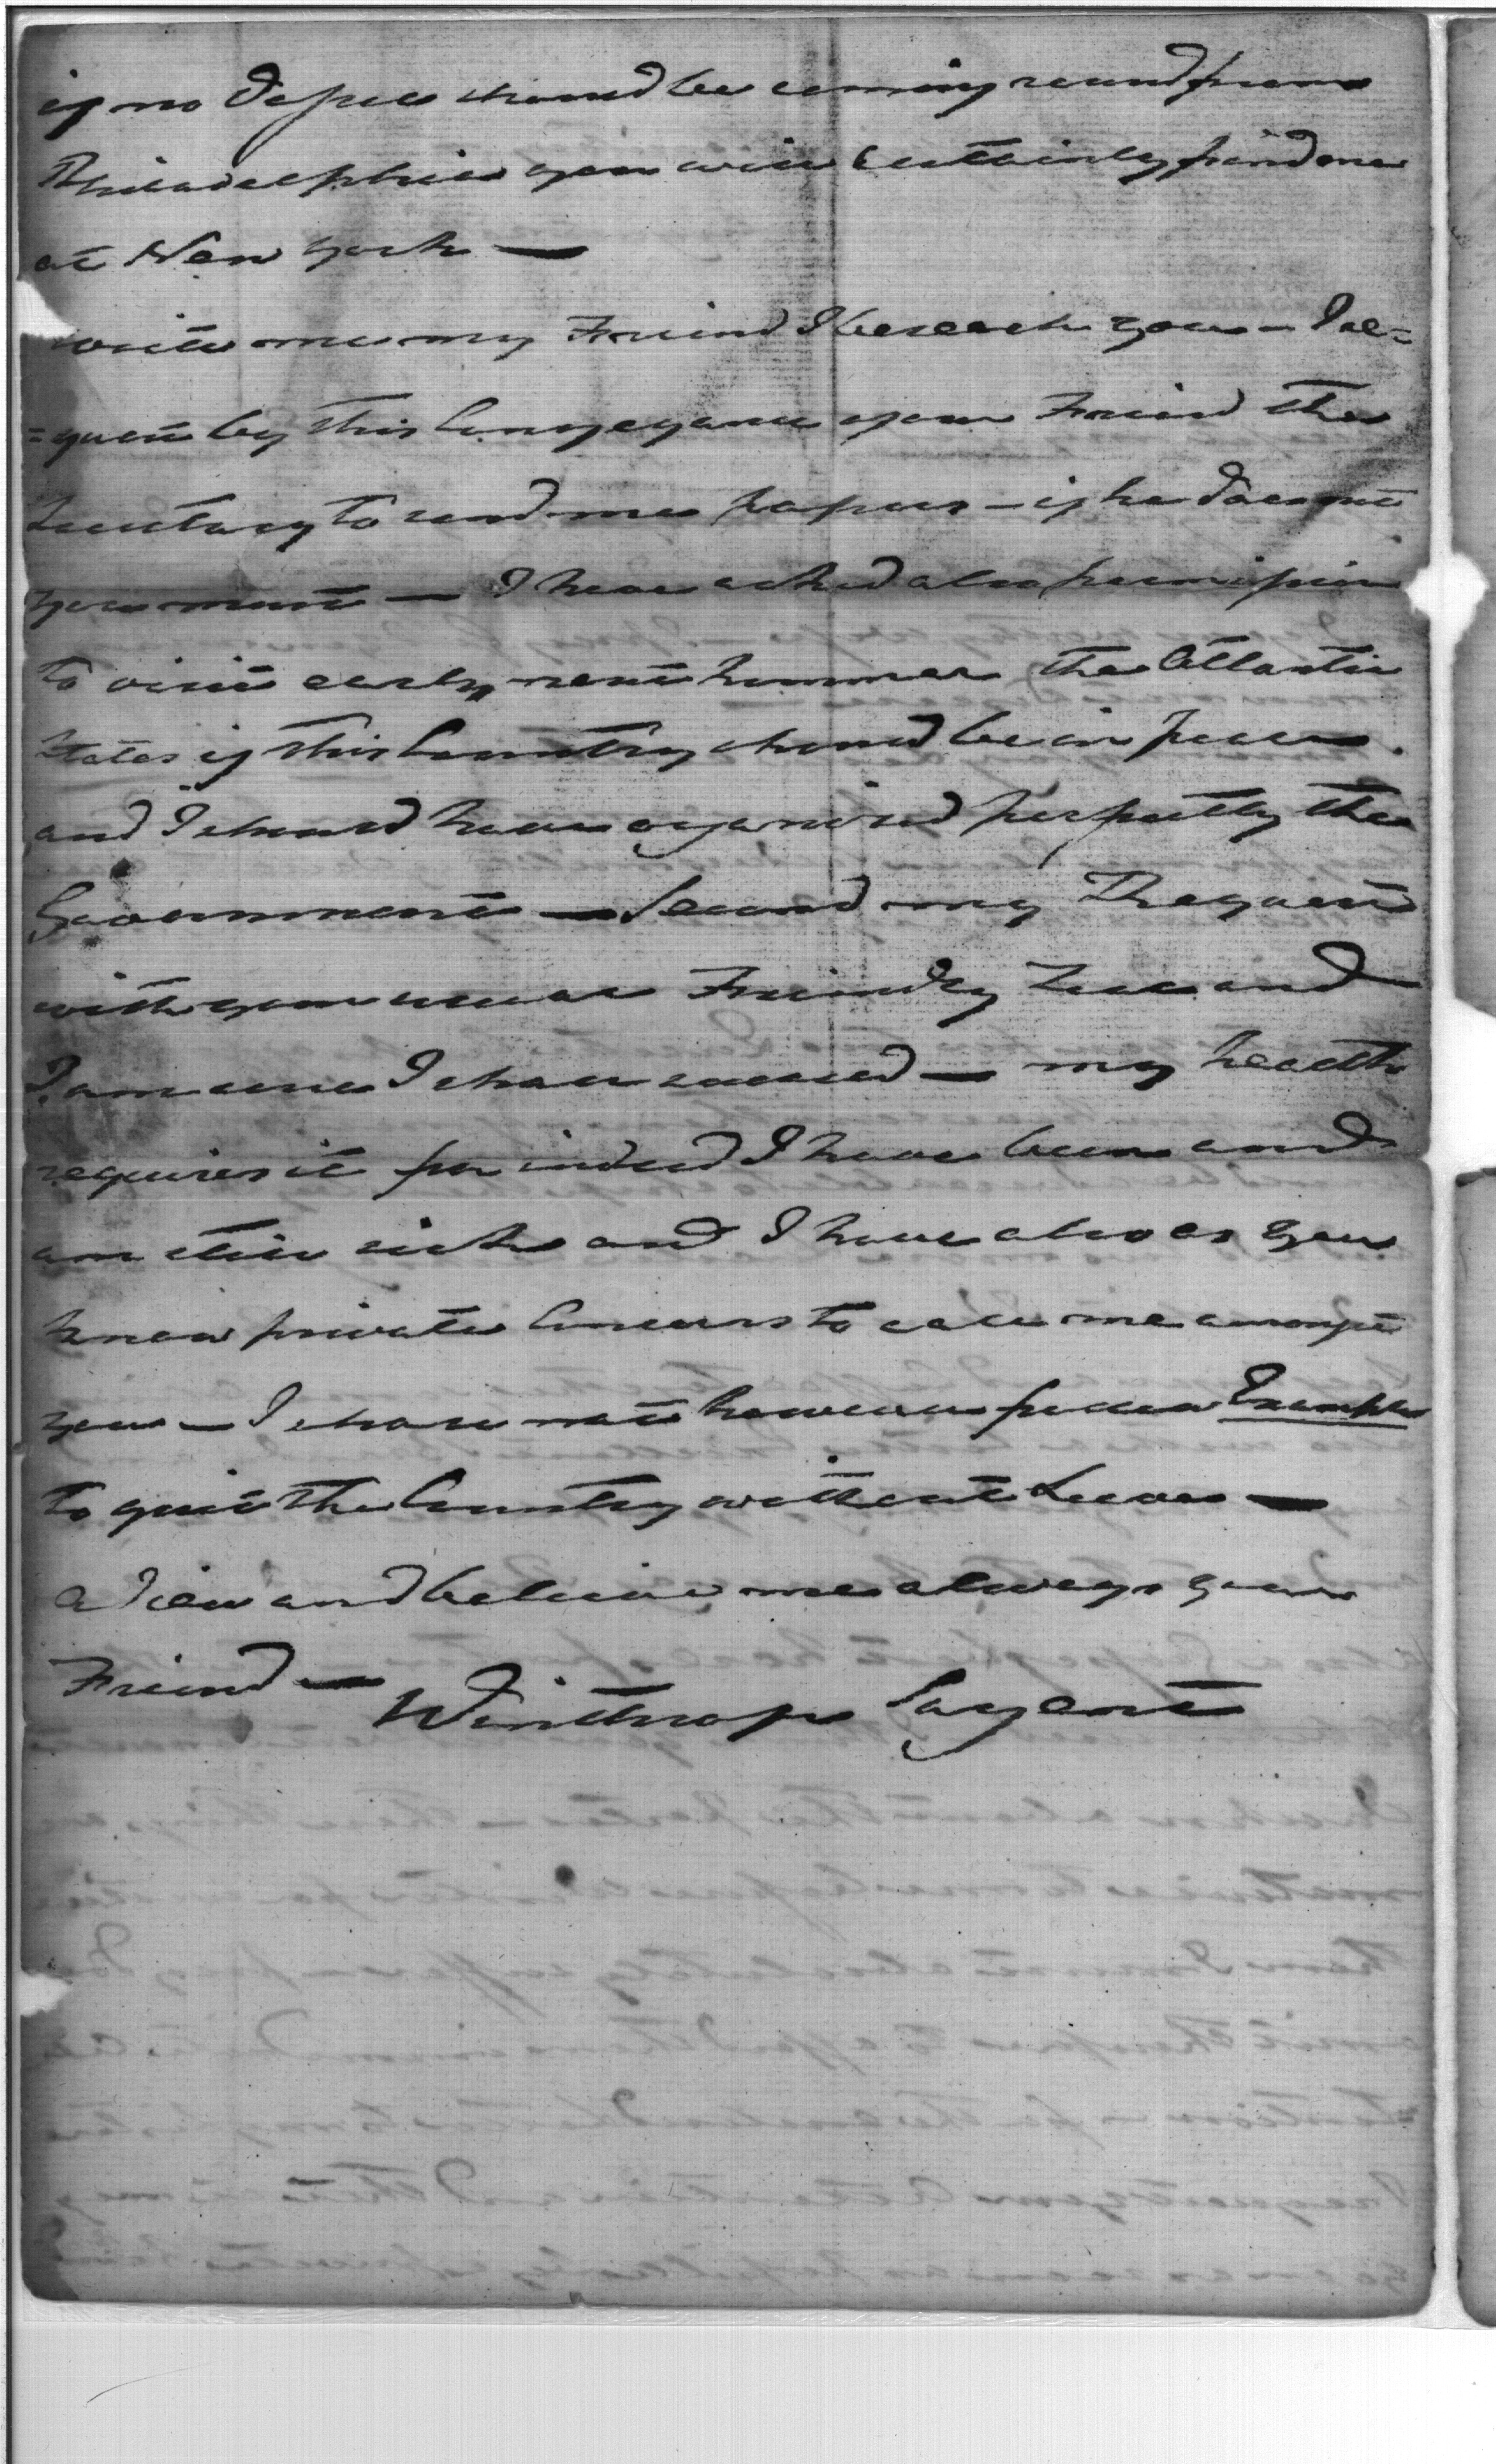 if no Vessel should be coming round from
Philadelphia you will Certainly find one
at New York —
write me my Friend I beseech you — I re=
=quest by this Conveyance your Friend the
Secretary to send me papers — if he does not
you must — I have asked also permission
to visit early next Summer the Atlantic
States if this Country should be in peace
and I should have organized perfectly the
Government — Second my Request
with your usual Friendly Zeal and
I am sure I shall succeed — my health
requires it for indeed I have been and
am still sick and I have also as you
know private Concerns to call me amongst
you — I shall not however follow Example
to quit the Country without Leave —
adieu and believe me always your
Friend — Winthrop Sargent